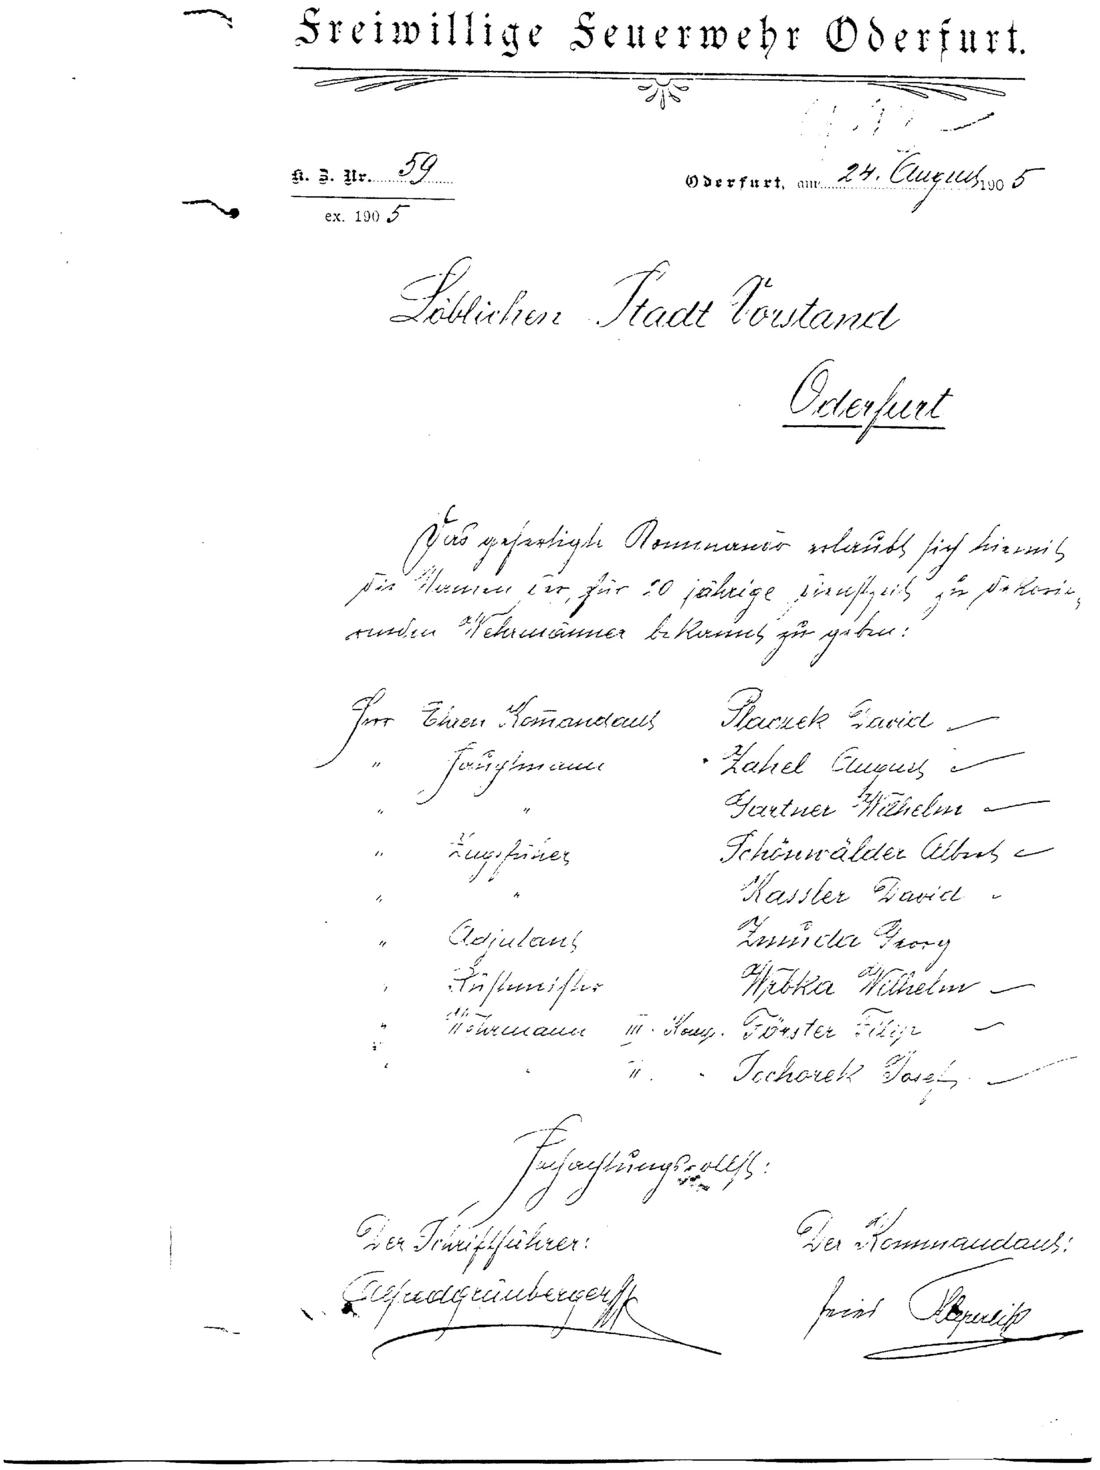 Freiwillige Feuerwehr Oderfurt.
K. Z. Nr. 59
Oderfurt, am 24. August 1905
ex. 1905
Löblichen Stadt Vorstand
Oderfurt
Das gefertigte Kommando erlaubt sich hiemit
die Namen der, für 20 jährige Dienstzeit zu dekorie-
renden Wehrmänner bekannt zu geben:
Herr Ehren Kom̅andant Placzek David
" Hauptmann Zahel August
" " Gartner Wilhelm
" Zugsführer Schönwälder Albert
" " Kassler David
" Adjutant Zmuda Georg
" Rüstmeister Wrbka Wilhelm
" Wehrmann III. Komp. Förster Filip
" " II. " Sochorek Josef
Hochachtungsvollst:
Der Schriftführer: Der Kommandant:
Alfred Grünberger